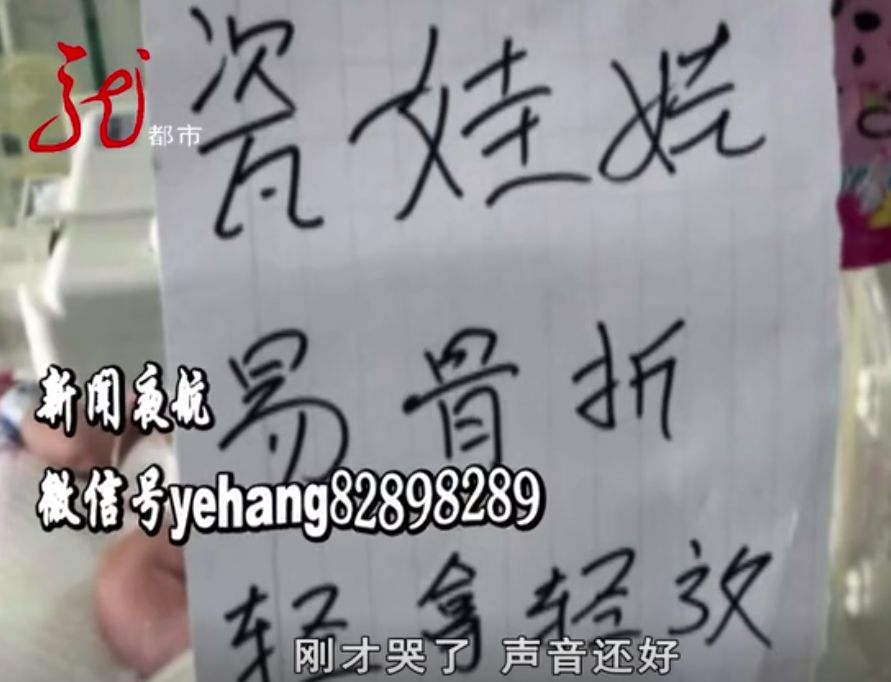 瓷娃娃
都市
易骨折
新闻夜航
微信号yehang82898289
轻拿轻放
刚才哭了 声音还好